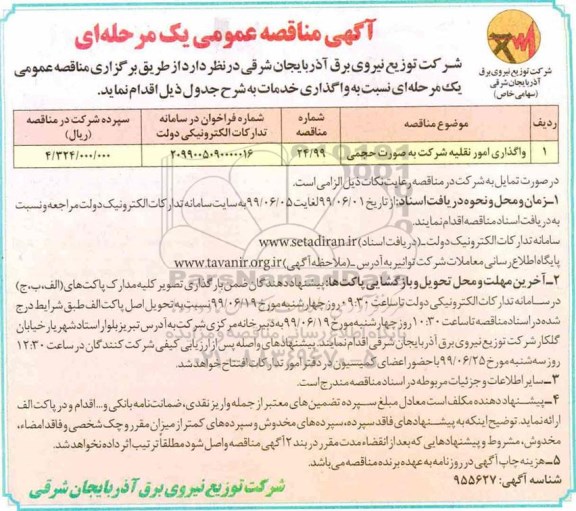 آگهی مناقصه عمومی یک مرحله‌ای
شرکت توزیع نیروی برق
آذربایجان شرقی
(سهامی خاص)
شرکت توزیع نیروی برق آذربایجان شرقی در نظر دارد از طریق برگزاری مناقصه عمومی
یک مرحله‌ای نسبت به واگذاری خدمات به شرح جدول ذیل اقدام نماید.
ردیف موضوع مناقصه شماره مناقصه شماره فراخوان در سامانه تدارکات الکترونیکی دولت سپرده شرکت در مناقصه (ریال)
۱ واگذاری امور نقلیه شرکت به صورت حجمی ۲۴/۹۹ ۲۰۹۹۰۰۵۰۹۰۰۰۰۰۱۶ ۴/۳۲۴/۰۰۰/۰۰۰
در صورت تمایل به شرکت در مناقصه رعایت نکات ذیل الزامی است.
۱ـ زمان و محل و نحوه دریافت اسناد: از تاریخ ۹۹/۰۶/۰۱ لغایت ۹۹/۰۶/۰۵ به سایت سامانه تدارکات الکترونیک دولت مراجعه و نسبت
به دریافت اسناد مناقصه اقدام نمایند.
سامانه تدارکات الکترونیک دولت ـ (دریافت اسناد) www.setadiran.ir
پایگاه اطلاع رسانی معاملات شرکت توانیر به آدرس ـ (ملاحظه آگهی) www.tavanir.org.ir
۲ـ آخرین مهلت و محل تحویل و بازگشایی پاکت‌ها: پیشنهاد دهندگان ضمن بارگذاری تصویر کلیه مدارک پاکت‌های (الف، ب، ج)
در سامانه تدارکات الکترونیکی دولت تا ساعت ۰۹:۳۰ روز چهارشنبه مورخ ۹۹/۰۶/۱۹ نسبت به تحویل اصل پاکت الف طبق شرایط درج
شده در اسناد مناقصه تا ساعت ۱۰:۳۰ روز چهارشنبه مورخ ۹۹/۰۶/۱۹ به دبیرخانه مرکزی شرکت به آدرس تبریز بلوار استاد شهریار خیابان
گلکار شرکت توزیع نیروی برق آذربایجان شرقی اقدام نمایند. پیشنهادهای واصله پس از ارزیابی کیفی شرکت کنندگان در ساعت ۱۲:۳۰
روز سه‌شنبه مورخ ۹۹/۰۶/۲۵ با حضور اعضای کمیسیون در دفتر امور تدارکات افتتاح خواهد شد.
۳ـ سایر اطلاعات و جزئیات مربوطه در اسناد مناقصه مندرج است.
۴ـ پیشنهاد دهنده مکلف است معادل مبلغ سپرده تضمین‌های معتبر از جمله واریز نقدی، ضمانت‌نامه بانکی و... اقدام و در پاکت الف
ارائه نماید. توضیح اینکه به پیشنهادهای فاقد سپرده، سپرده‌های مخدوش و سپرده‌های کمتر از میزان مقرر و چک شخصی و فاقد امضاء،
مخدوش، مشروط و پیشنهادهایی که بعد از انقضاء مدت مقرر در بند ۲ آگهی مناقصه واصل شود مطلقاً ترتیب اثر داده نخواهد شد.
۵ـ هزینه چاپ آگهی در روزنامه به عهده برنده مناقصه می‌باشد.
شناسه آگهی: ۹۵۵۶۲۷
شرکت توزیع نیروی برق آذربایجان شرقی